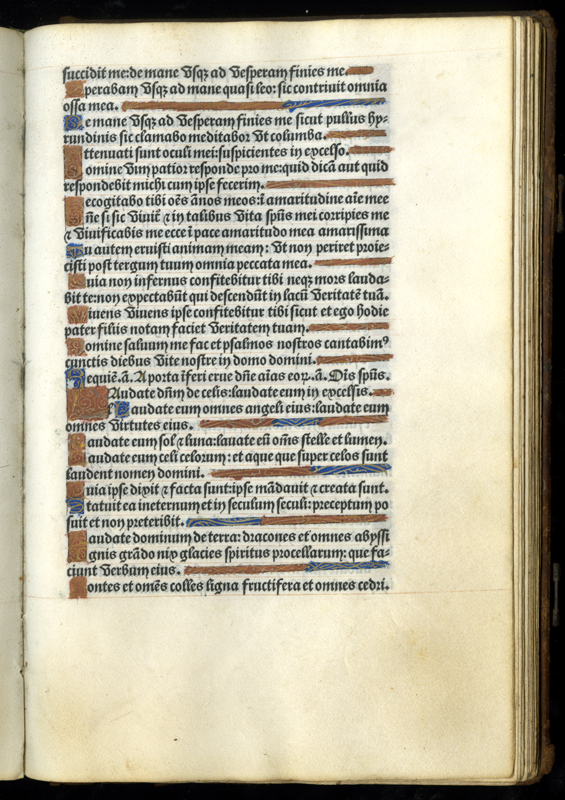 succidit me:de mane vsqꝫ ad vesperam finies me.
Sperabam vsqꝫ ad mane quasi leo: sic contriuit omnia
ossa mea.
De mane vsqꝫ ad vesperam finies me sicut pullus hy-
rundinis sic clamabo meditabor vt columba.
Attenuati sunt oculi mei:suspicientes in excelso.
Domine vim patior responde pro me:quid dicā aut quid
respondebit michi cum ipse fecerim.
Recogitabo tibi oēs ānos meos:ī amaritudine aīe mee
Dñe si sic viuiť ⁊ in talibus vita spūs mei corripies me
⁊ viuificabis me ecce ī pace amaritudo mea amarissima
Tu autem eruisti animam meam: vt non periret proie-
cisti post tergum tuum omnia peccata mea.
Quia non infernus confitebitur tibi neqꝫ mors lauda-
bit te:non expectabūt qui descendūt in lacū veritatē tuā.
Viuens viuens ipse confitebitur tibi sicut et ego hodie
pater filiis notam faciet veritatem tuam.
Domine saluum me fac et psalmos nostros cantabimꝰ
cunctis diebus vite nostre in domo domini.
Requiē.ā. A porta īferi erue dñe aīas eoꝝ.ā. Oīs spūs.
Laudate dñm de celis:laudate eum in excelsis.
Laudate eum omnes angeli eius:laudate eum
omnes virtutes eius.
Laudate eum sol ⁊ luna:lauate eū oīns stelle et lumen.
Laudate eum celi celorum: et aque que super celos sunt
laudent nomen domini.
Quia ipse dixit ⁊ facta sunt:ipse mādauit ⁊ creata sunt.
Statuit ea ineternum et in seculum seculi:preceptum po
suit et non preteribit.
Laudate dominum de terra:dracones et omnes abyssi
Ignis grādo nix glacies spiritus procellarum: que fa-
ciunt verbum eius.
Montes et omēs colles ligna fructifera et omnes cedri.